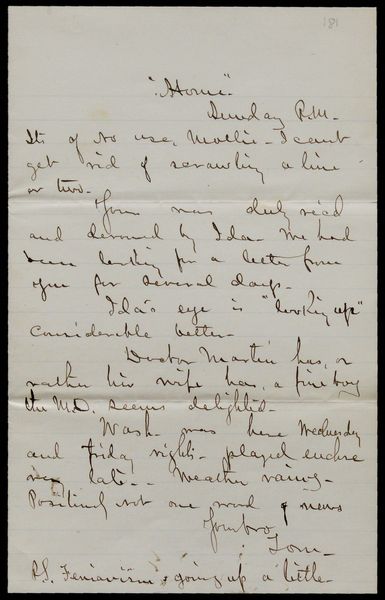 181
"Home"
Sunday P.M.
Its of no use, Mollie - I cant
get rid of scrawling a line
or two -
Yours was duly rec'd
and devoured by Ida - We had
been looking for a letter from
you for several days -
Ida's eye is "looking up"
considerable better -
Doctor Martin has, or
rather his wife has, a fine boy
the M.D. seems delighted -
Wash was here Wednesday
and Friday nights - played euchre
very late - - Weather rainy -
Positively not one word of news
Your bro,
Tom -
P.S. Fenianism is going up a little -